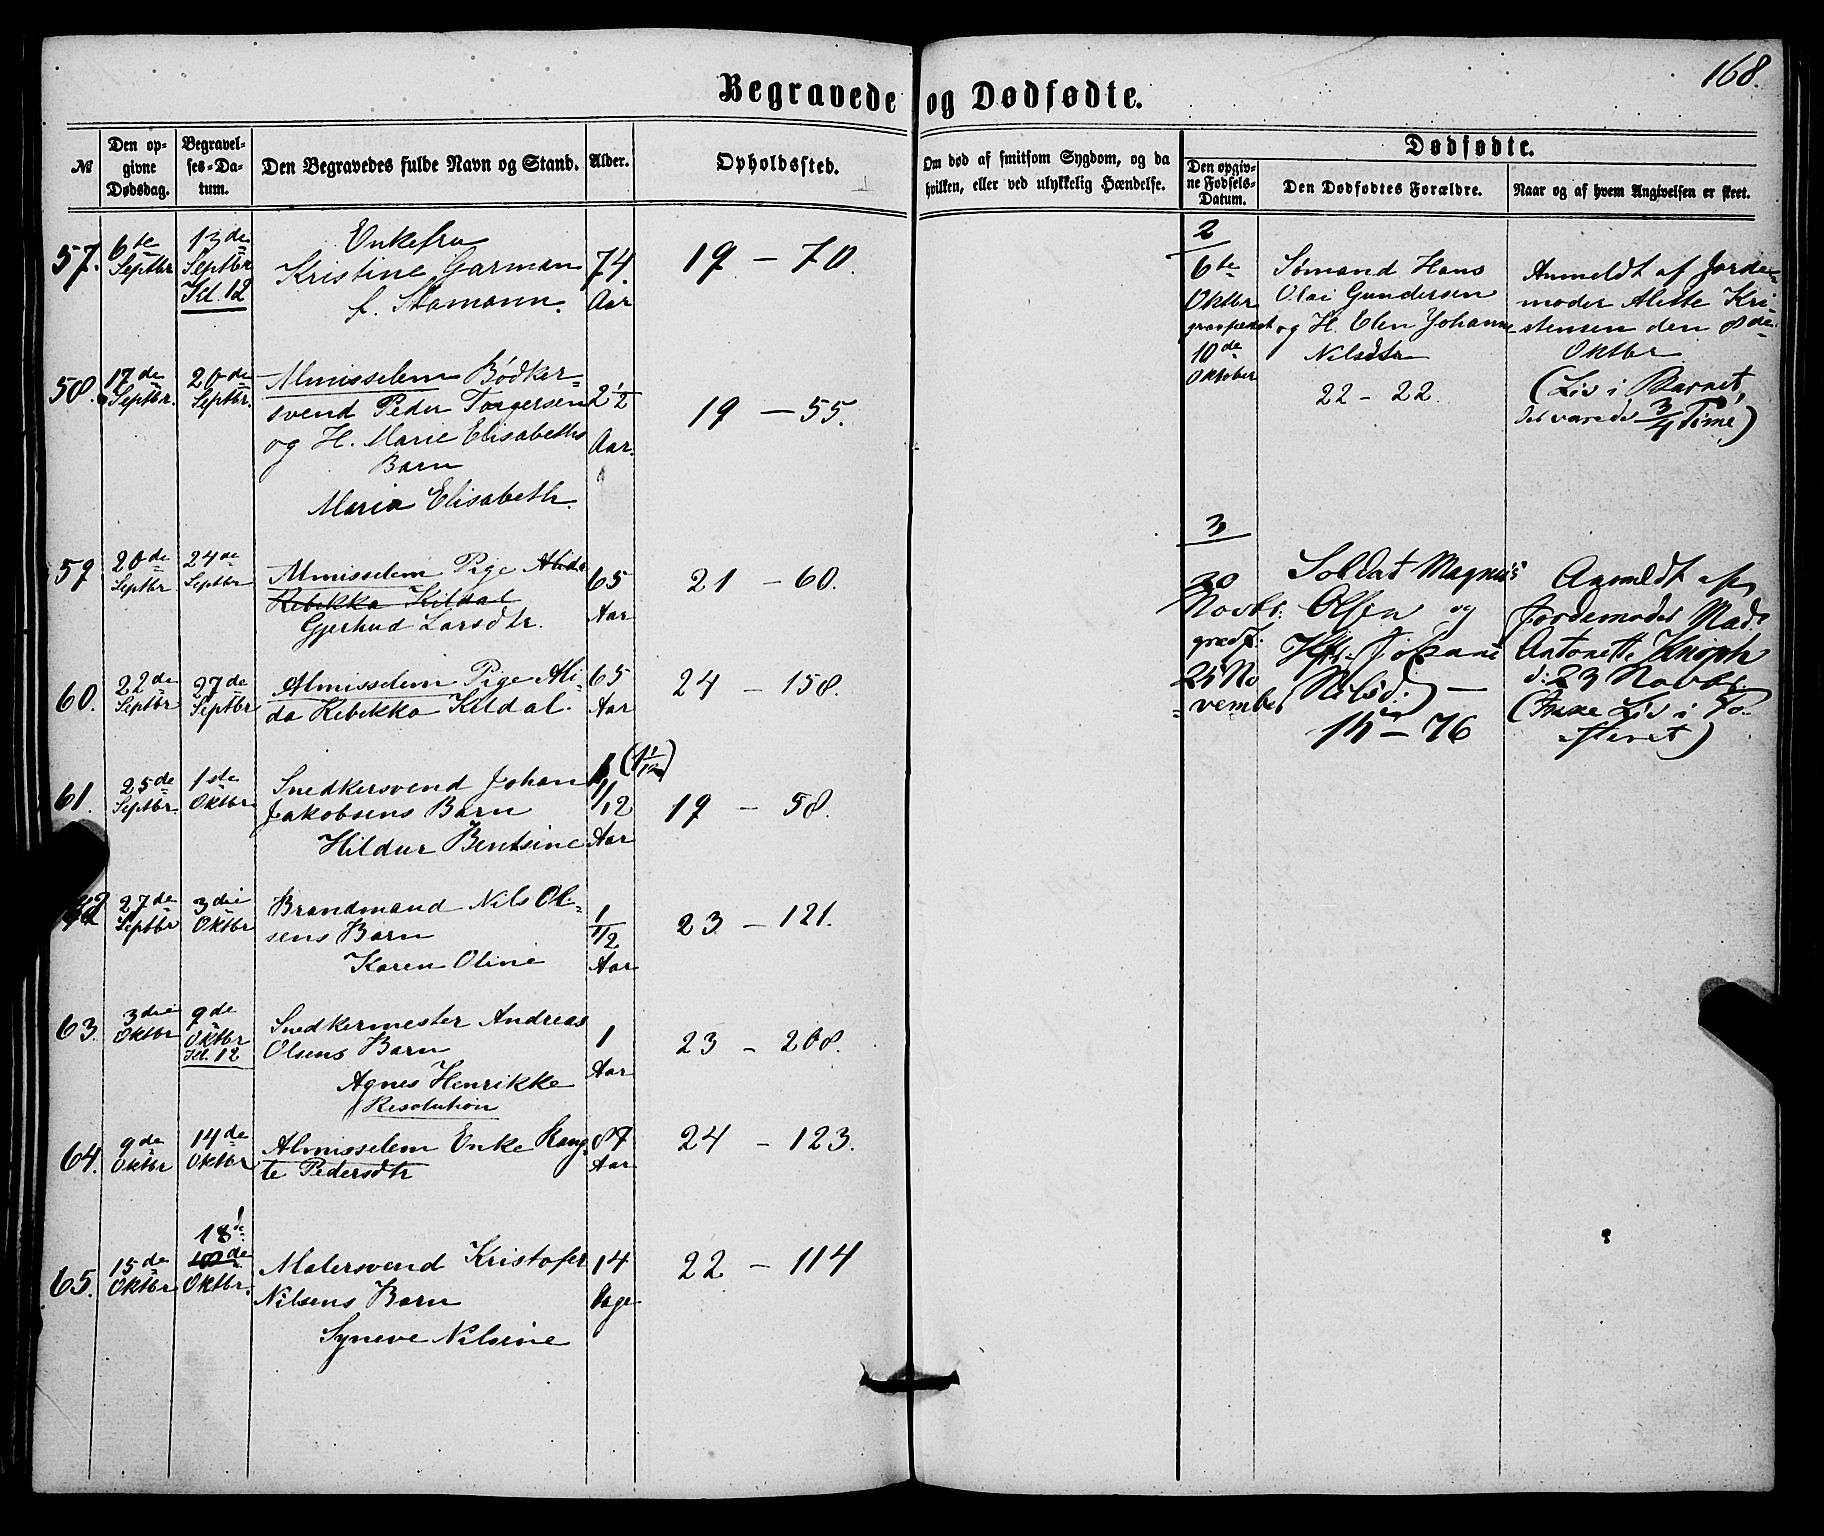 168.
Begravede og Dødfødte.
№
Den opgivne Dødsdag.
Begravelses-Datum.
Den Begravedes fulde Navn og Stand.
Alder.
Opholdssted.
Om død af smitsom Sygdom, og da hvilken, eller ved ulykkelig Hændelse.
Dødfødte.
Den opgivne Fødsels-Datum.
Den Dødfødtes Forældre.
Naar og af hvem Angivelsen er skeet.
57. 6te Septbr 13de Septbr Kl. 12
Enkefru
Kristine Garman
f. Stamann.
74 Aar
19 – 70.
58. 17de Septbr. 20de Septbr.
Almisselem Bødker-
svend Peder Torgersen
og H. Marie Elisabeths
Barn
Maria Elisabeth.
2½ Aar.
19 – 55.
59 20de Septbr 24de Septbr
Almisselem Pige Alida
Rebekka Kildal
Gjertrud Larsdtr.
65 Aar
21 – 60.
60. 22de Septbr 27de Septbr
Almisselem Pige Ali-
da Rebekka Kildal.
65 Aar
24 – 158.
61. 25de Septbr 1ste Oktbr
Snedkersvend Johan
Jakobsens Barn
Hildur Bentsine
1 1/12 Aar (1 1/12)
19 – 58.
62 27de Septbr 3die Oktbr
Brandmand Nils Ol-
sens Barn
Karen Oline
1 1/2 Aar
23 – 121.
63. 3die Oktbr 9de Oktbr Kl. 12
Snedkermester Andreas
Olsens Barn
Agnes Henrikke
Resolution
1 Aar
23 – 208.
64. 9de Oktbr 14de Oktbr
Almisselem Enke Rang-
te Pedersdtr
87 Aar
24 – 123.
65. 15de Oktbr 18de Oktbr.
Malersvend Kristofer
Nilsens Barn
Syneve Nilsine
14 Dage
22 – 114
2
6te Oktbr
gravfæstet
10de Oktober
Sømand Hans
Olai Gundersen
og H. Elen Johanne
Nilsdtr
22 – 22.
Anmeldt af Jorde-
moder Alette Kri-
stensen den 8de
Oktbr
(Liv i Barnet,
det varede 3/4 Time)
3
20 Novbr.
grædf.
25 No-
vember
Soldat Magnus
Olsen og
Hst. Johanne
Nilsd. –
15 – 76
Anmeldt af
Jordemoder Mad.
Antonette Knoph
d. 23 Novbr.
(Ikke Liv i Fo-
steret)